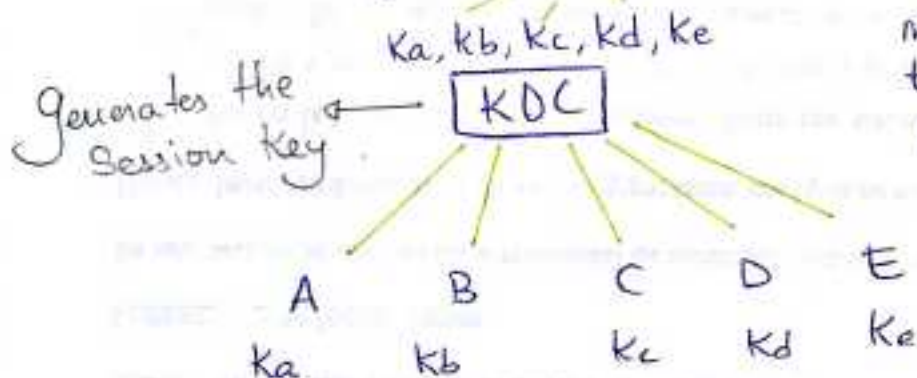 Ka, kb, Kc, kd, Ke
Generates the
Session Key.
KDC
A B C D E
Ka kb Kc Kd Ke